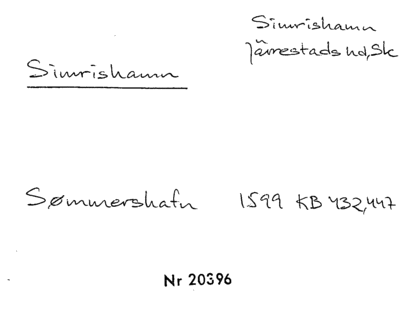 Simrishamn
Järrestads hd, Sk
Simrishamn
Sømmershafn 1599 KB 432,447
Nr 20396